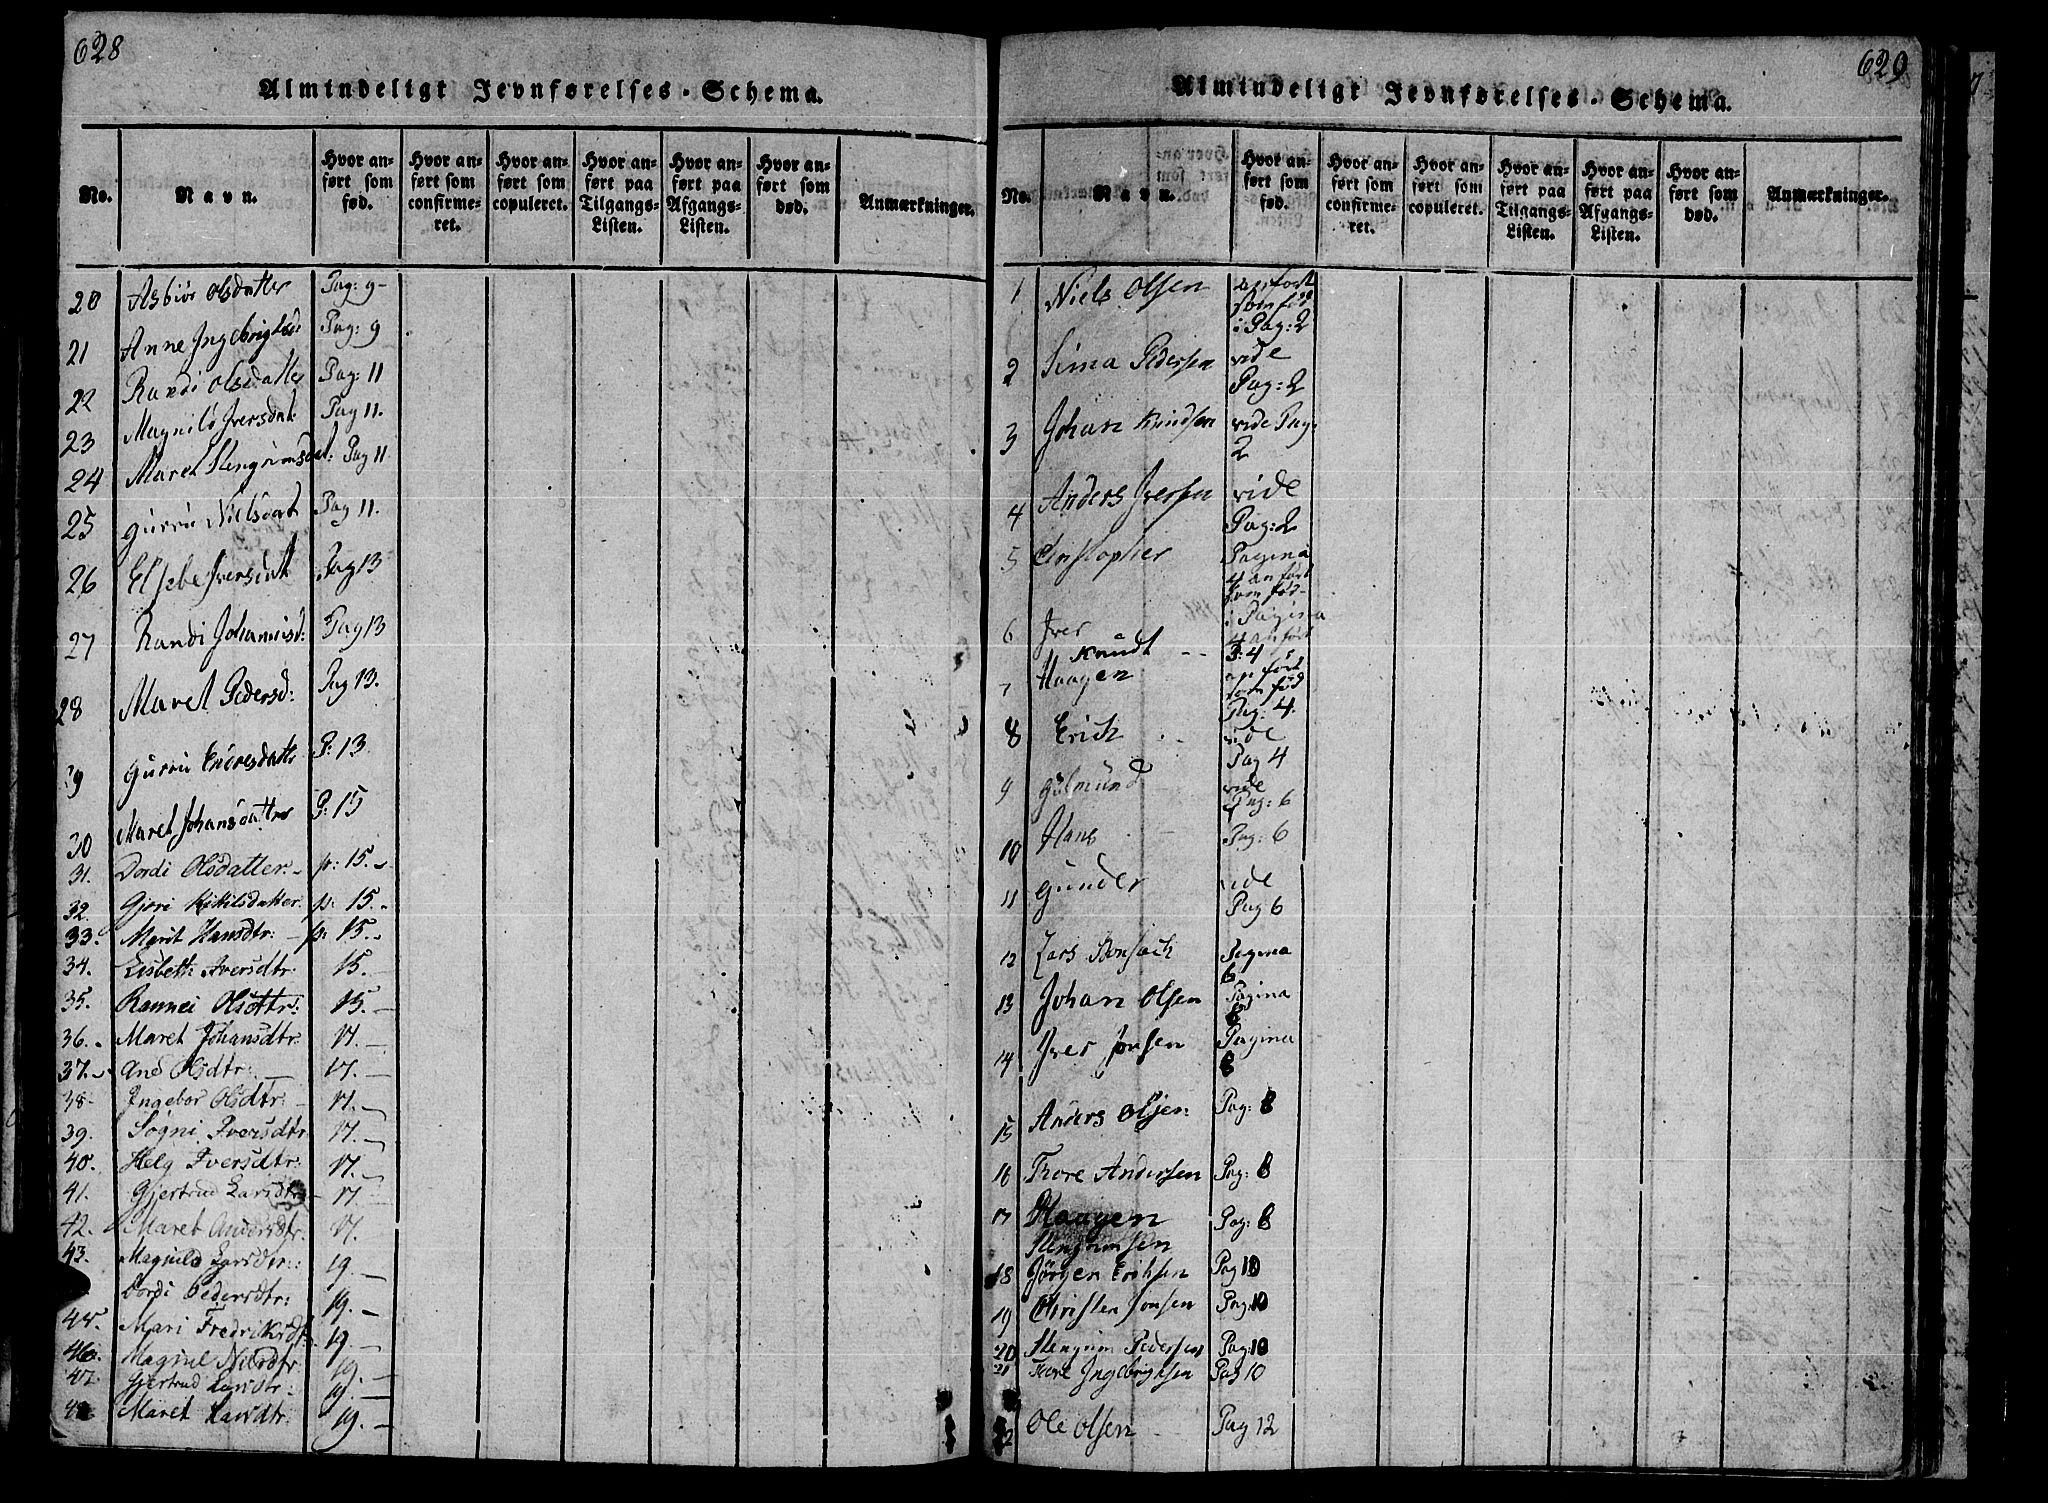 628
Almindeligt Jevnførelses-Schema.
No. Navn. Hvor anført som fød. Hvor anført som confirmeret. Hvor anført som copuleret. Hvor anført paa Tilgangs-Listen. Hvor anført paa Afgangs-Listen. Hvor anført som død. Anmærkninger.
20 Asbiør Olsdatter Pag: 9-
21 Anne Ingebrigtsd: Pag: 9
22 Randi Olsdatter Pag: 11
23 Magnild Iversdat: Pag 11.
24 Maret Stengrimsdat: Pag 11
25 Gurru Nielsdat Pag 11.
26 Elsebe Iversdat Pag 13
27 Randi Johannisd: Pag 13
28 Maret Pedersd: Pag 13.
29 Gurru Endresdattr P: 13
30 Maret Johansdatter P: 15
31. Dordi Olsdatter.- p: 15.-
32. Gjøri Ketilsdatter. p: 15.-
33. Marit Hansdtr: - p: 15.-
34. Lisbeth Iversdtr: 15.-
35. Rannei Olsdttr: 15.-
36. Maret Johansdtr: 17.-
37. And Olsdtr: - 17.-
38- Ingebor Olsdtr: - 17.-
39. Søgni Iversdtr 17.-
40. Helg Iversdtr: 17.-
41. Gjertrud Larsdtr - 17
42. Maret Andersdtr. 17.
43. Magnild Larsdtr: 19.-
Dordi Pedersdtr: 19.-
45. Mari Fredriksdtr. 19.-
46. Magnil Nilsdtr. 19.-
47. Gjertrud Larsdtr: 19.-
48. Maret Larsdtr: 19.-
629
Almindeligt Jevnførelses-Schema.
No. Navn. Hvor anført som fød. Hvor anført som confirmeret. Hvor anført som copuleret. Hvor anført paa Tilgangs-Listen. Hvor anført paa Afgangs-Listen. Hvor anført som død. Anmærkninger.
1 Niels Olsen anført
som fød
i Pag: 2
2 Sima Pedersen vide
Pag: 2
3 Johan Knudsen vide Pag:
2
4 Anders Iversen vide
Pag: 2
5 Christopher Pagina
4 anført
som fød-
6 Iver i Pagina
4 anført
Knudt -- 3: 4
7 Haagen anført
som fød
Pag: 4.
8 Erich -- vide
Pag 4
9 Gulmund vide
Pag: 6
10 Hans Pag: 6
11 Gunder vide
Pag 6
12 Lars Pagina
6
13 Johan Olsen Pagina
8
14 Iver Jonsen Pagina
8
15 Anders Olsen: Pag: 8
16 Thore Andersen Pag: 8
17 Haagen Pag: 8
Stengrimsen
18 Jørgen Erichsen Pag 10
19 Christen Jonsen Pag: 10
20 Stengrim Pedersen Pag: 10
21 Tore Ingebrigtsen Pag 10
2 Ole Olsen Pag 12